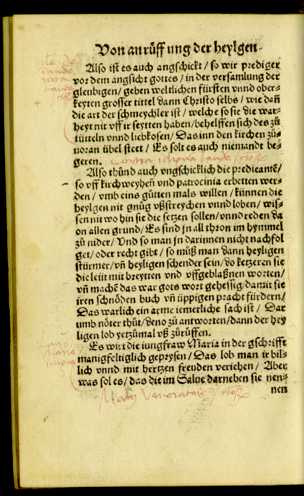 Von anrüff ung der heylgen
Also ist es auch angschickt / so wir prediger
vor dem angsicht gottes / in der versamlung der
gleubigen / geben weltlichen fürsten vnnd ober-
keyten grosser tittel dann Christo selbs / wie dañ
die art der schmeychler ist / welche so sie die war-
heyt nit vff ir seytten haben / behelffen sich des zů
tütteln vnnd liebkosen / Das inn den kirchen zů-
noran übel steet / Es solt es auch niemandt be-
geren.
Also thůnd auch vngschicklich die predicanté /
so vff kirchweyhen vnd patrocinia erbetten wer-
den / vmb eins gůtten mals willen / künnen die
heylgen nit gnůg vßstreychen vnnd loben / wis-
sen nit wo hin sie die setzen sollen / vnnd reden da
on allen grund / Es sind jn all thron im hymmel
zů nider / Vnd so man jn darinnen nicht nachfol
get / oder recht gibt / so můß man dann heyligen
stürmer / vñ heyligen schender sein / do ketzeren sie
die leüt mit breytten vnd vffgeblaßnen worten /
vñ machē das war gots wort gehessig / damit sie
iren schnöden buch vñ üppigen pracht fürdern /
Das warlich ein arme iemerliche sach ist / Dar
umb nöter thůt / jeno zů antworten / dann der hey
ligen lob yetzůmal vß zůrüffen.
Es wirt die iungfraw Maria in der gschrifft
manigfeltiglich gepreysen / Das lob man ir bil-
lich vnnd mit hertzen freuden verjehen / Aber
was sol es / das die im Salue darneben sie nen-
nen